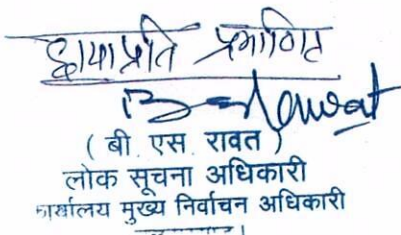 छायाप्रति प्रमाणित
( बी. एस. रावत )
लोक सूचना अधिकारी
कार्यालय मुख्य निर्वाचन अधिकारी